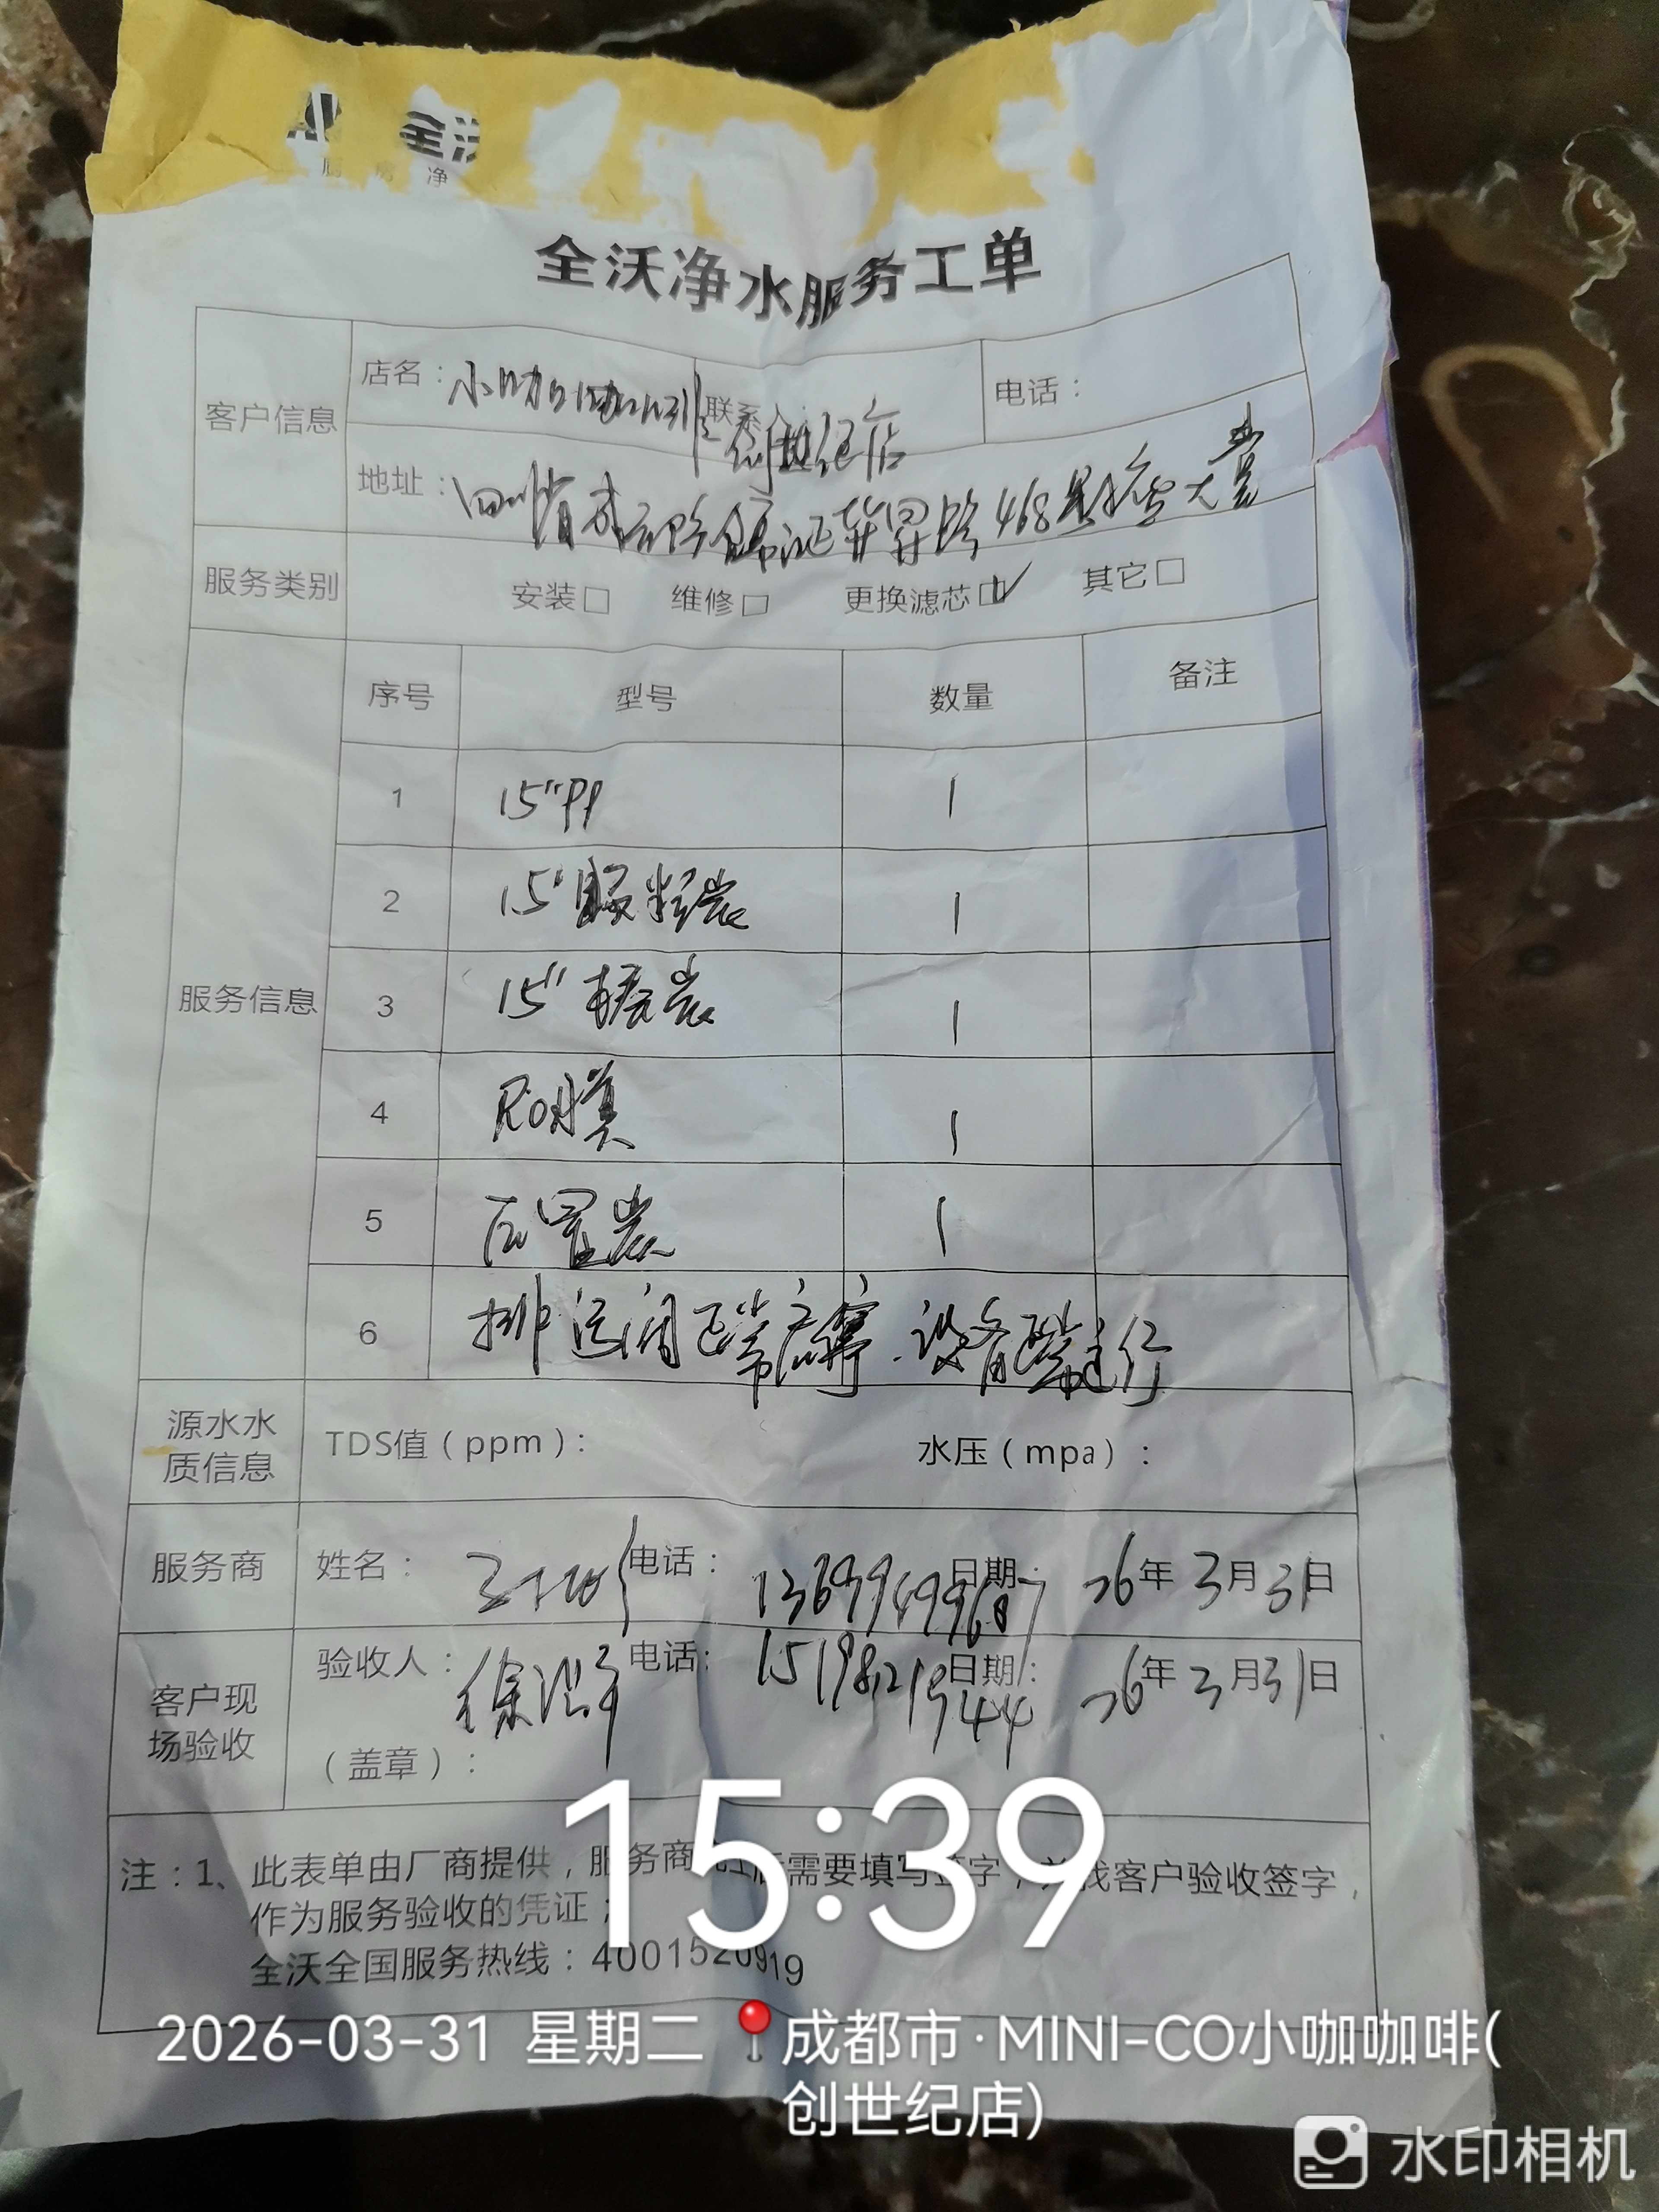 全沃
全沃净水服务工单
客户信息
店名：小咖咖啡 联系人：创世纪店 电话：
地址：四川省成都 468号
服务类别 安装□ 维修□ 更换滤芯☑ 其它□
服务信息
序号 型号 数量 备注
1 15"PP 1
2 15"颗粒炭 1
3 15" 炭 1
4 RO膜 1
5 后置炭 1
6 排 正常 设备正常运行
源水水质信息 TDS值（ppm）： 水压（mpa）：
服务商 姓名： 电话： 日期： 26年3月31日
客户现场验收 验收人：徐 电话：15198219444 日期：26年3月31日
（盖章）：
注：1、此表单由厂商提供，服务商 后需要填写签字，并找客户验收签字，
作为服务验收的凭证；
全沃全国服务热线：4001520919
15:39
2026-03-31 星期二 成都市·MINI-CO小咖咖啡(
创世纪店)
水印相机